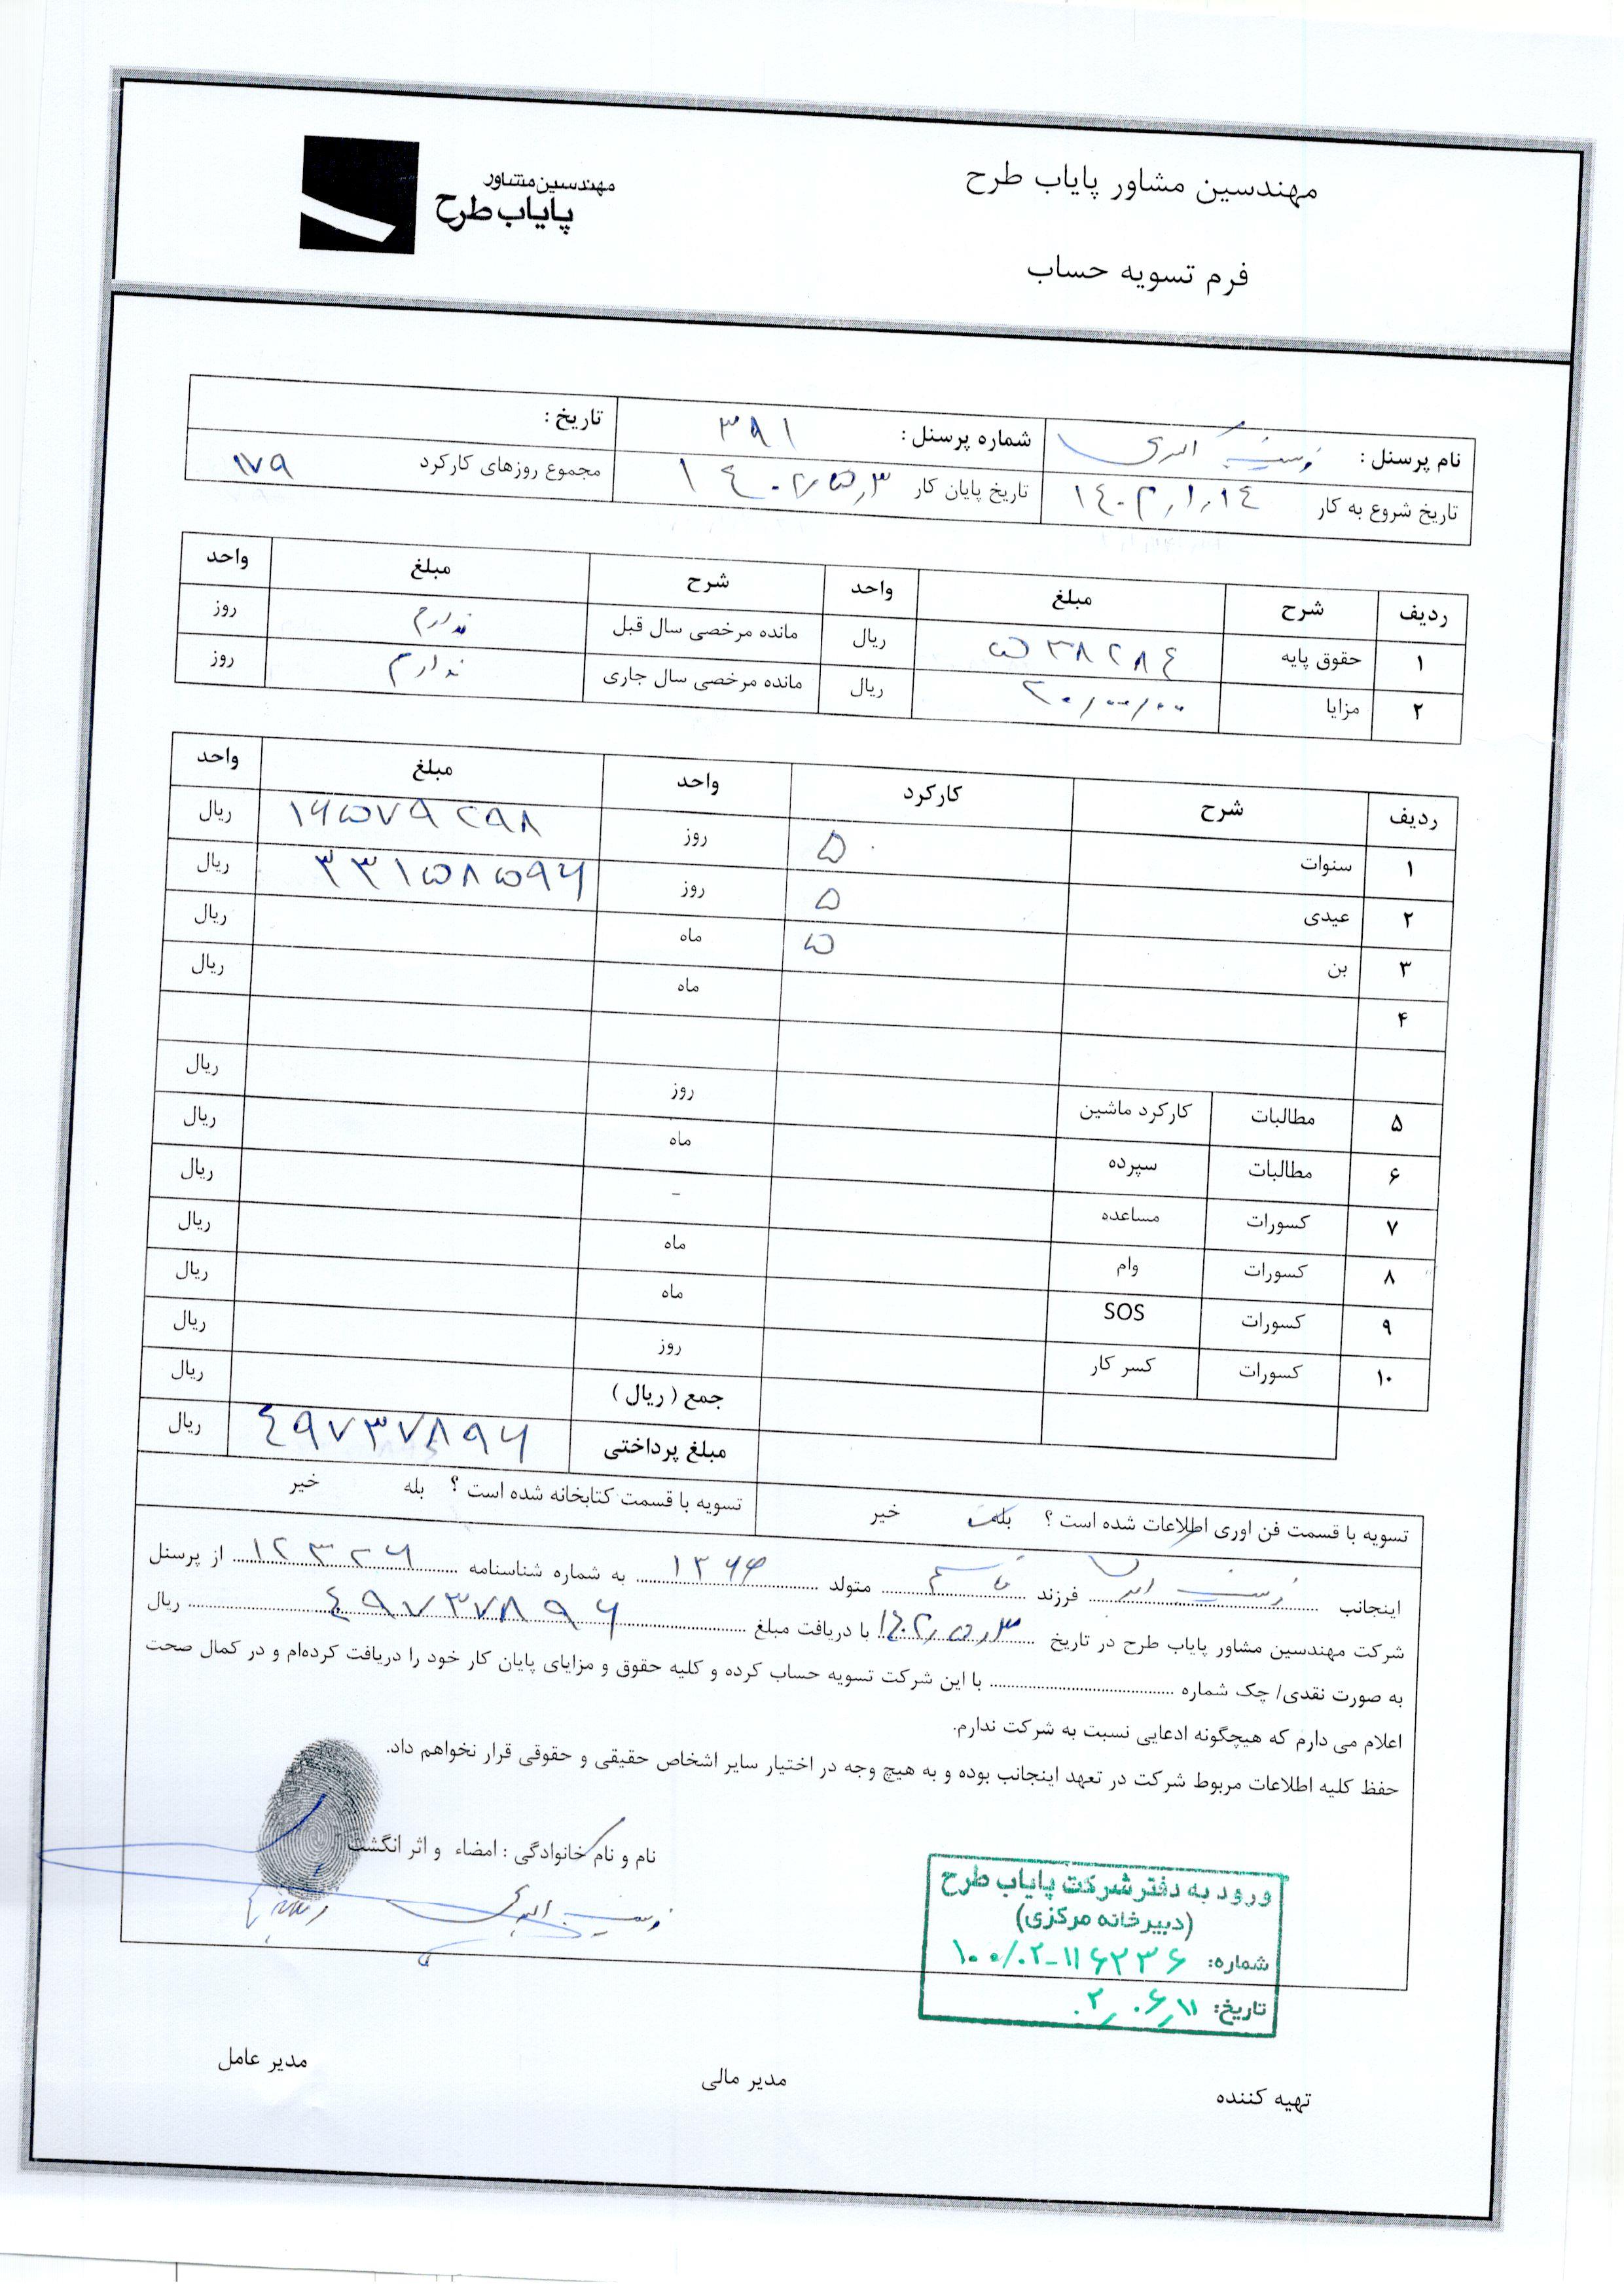 مهندسین مشاور پایاب طرح
مهندسین مشاور
پایاب طرح
فرم تسویه حساب
نام پرسنل : شماره پرسنل : ۳۹۱ تاریخ :
تاریخ شروع به کار ۱۴۰۲,۱,۱۴ تاریخ پایان کار ۱۴۰۲,۵,۳ مجموع روزهای کارکرد ۱۷۹
ردیف شرح مبلغ واحد شرح مبلغ واحد
۱ حقوق پایه ۵۳۸۲۸۴ ریال مانده مرخصی سال قبل ندارم روز
۲ مزایا ریال مانده مرخصی سال جاری ندارم روز
ردیف شرح کارکرد واحد مبلغ واحد
۱ سنوات ۵ روز ۱۶۵۷۹۲۹۸ ریال
۲ عیدی ۵ روز ۳۳۱۵۸۵۹۶ ریال
۳ بن ۵ ماه ریال
۴ ماه ریال
۵ مطالبات کارکرد ماشین روز ریال
۶ مطالبات سپرده ماه ریال
۷ کسورات مساعده - ریال
۸ کسورات وام ماه ریال
۹ کسورات SOS ماه ریال
۱۰ کسورات کسر کار روز ریال
جمع ( ریال ) ریال
مبلغ پرداختی ۴۹۷۳۷۸۹۶ ریال
تسویه با قسمت فن اوری اطلاعات شده است ؟ بله خیر تسویه با قسمت کتابخانه شده است ؟ بله خیر
اینجانب فرزند قاسم متولد ۱۳۶۶ به شماره شناسنامه ۱۲۳۲۶ از پرسنل
شرکت مهندسین مشاور پایاب طرح در تاریخ ۱۴۰۲,۵,۳ با دریافت مبلغ ۴۹۷۳۷۸۹۶ ریال
به صورت نقدی/ چک شماره با این شرکت تسویه حساب کرده و کلیه حقوق و مزایای پایان کار خود را دریافت کرده‌ام و در کمال صحت
اعلام می دارم که هیچگونه ادعایی نسبت به شرکت ندارم.
حفظ کلیه اطلاعات مربوط شرکت در تعهد اینجانب بوده و به هیچ وجه در اختیار سایر اشخاص حقیقی و حقوقی قرار نخواهم داد.
نام و نام خانوادگی : امضاء و اثر انگشت
ورود به دفتر شرکت پایاب طرح
(دبیرخانه مرکزی)
شماره: ۱۰۰/۰۲-۱۱۶۲۳۶
تاریخ: ۰۲,۰۶,۱۱
تهیه کننده مدیر مالی مدیر عامل